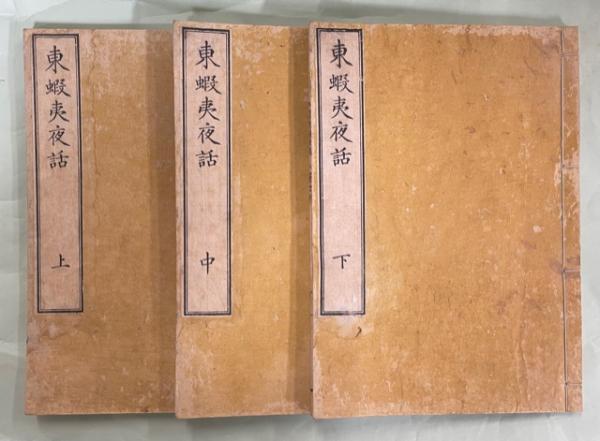 東蝦夷夜話 上
東蝦夷夜話 中
東蝦夷夜話 下